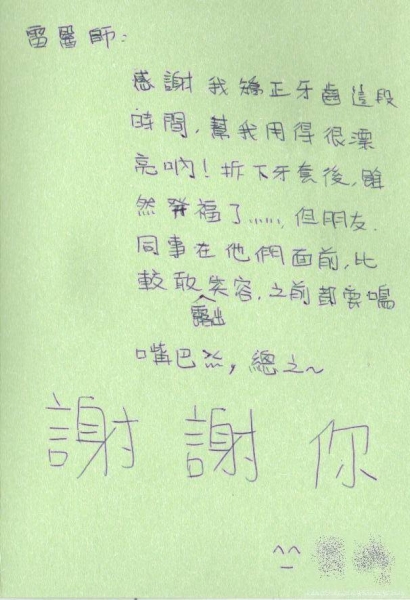 雷醫師：
感謝我矯正牙齒這段
時間，幫我用得很漂
亮吶！拆下牙套後，雖
然發福了……，但朋友．
同事在他們面前，比
較敢露出笑容，之前都要嘬
嘴巴，總之~
謝 謝 你
^_^